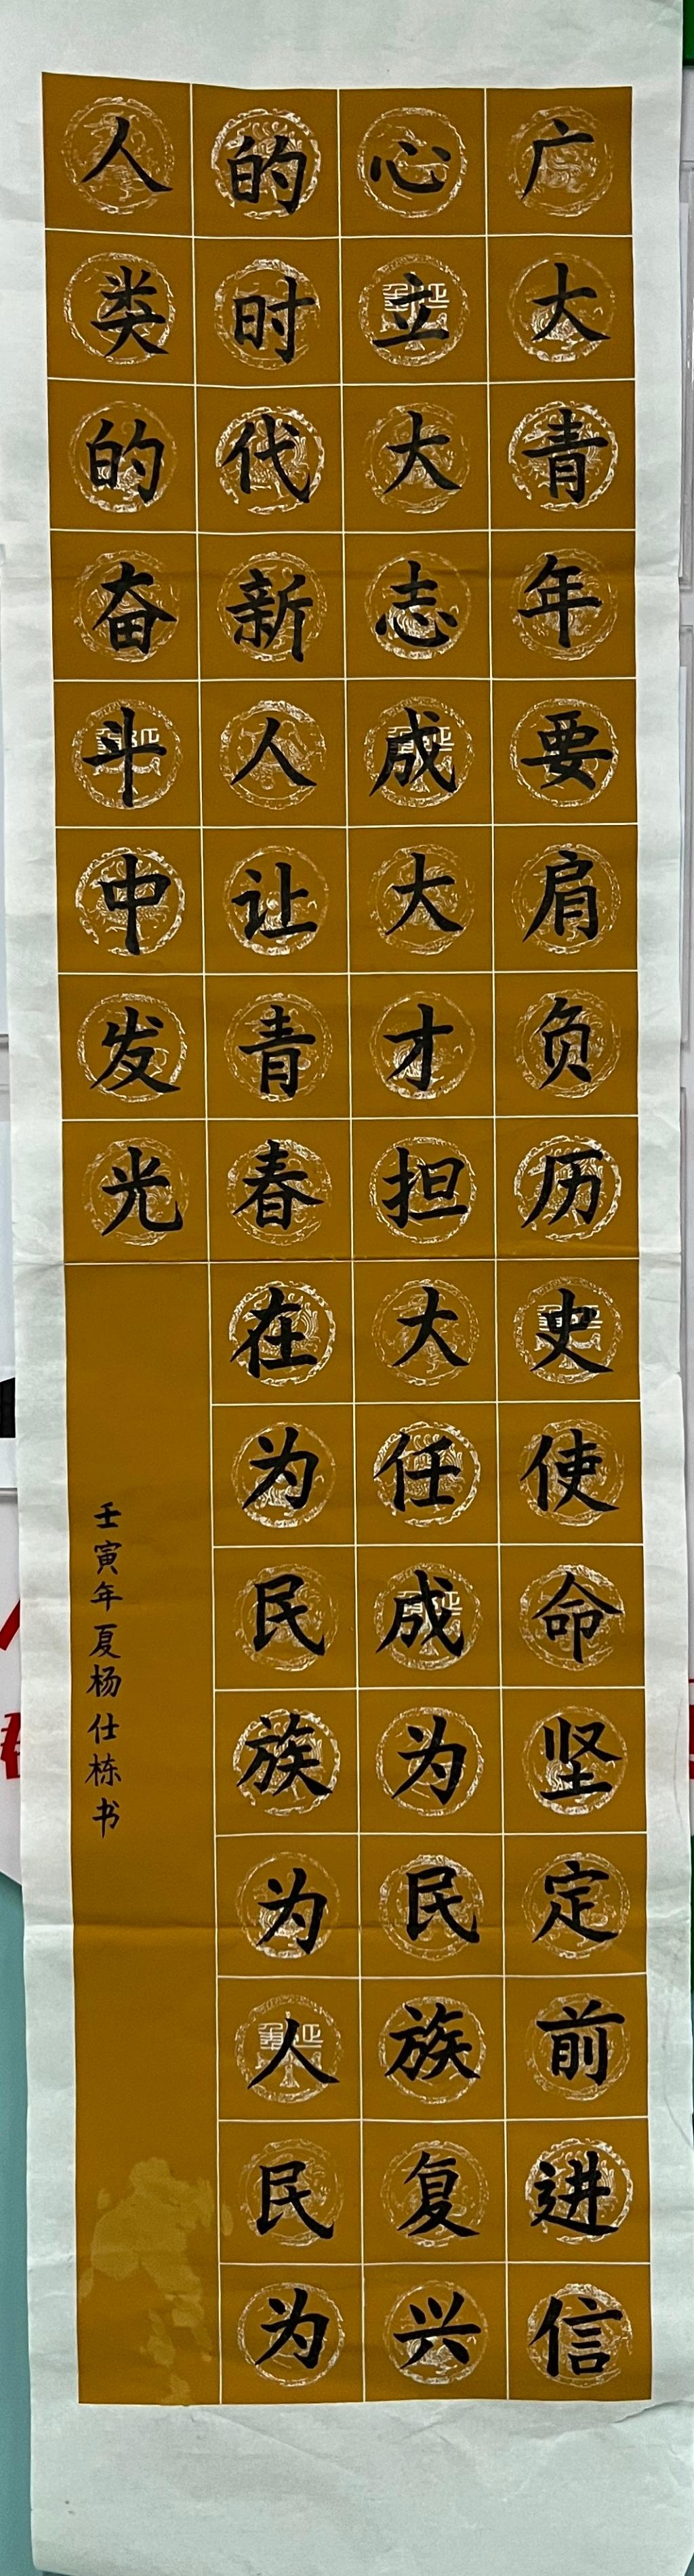 广大青年要肩负历史使命坚定前进信
心立大志成大才担大任成为民族复兴
的时代新人让青春在为民族为人民为
人类的奋斗中发光
壬寅年夏杨仕栋书